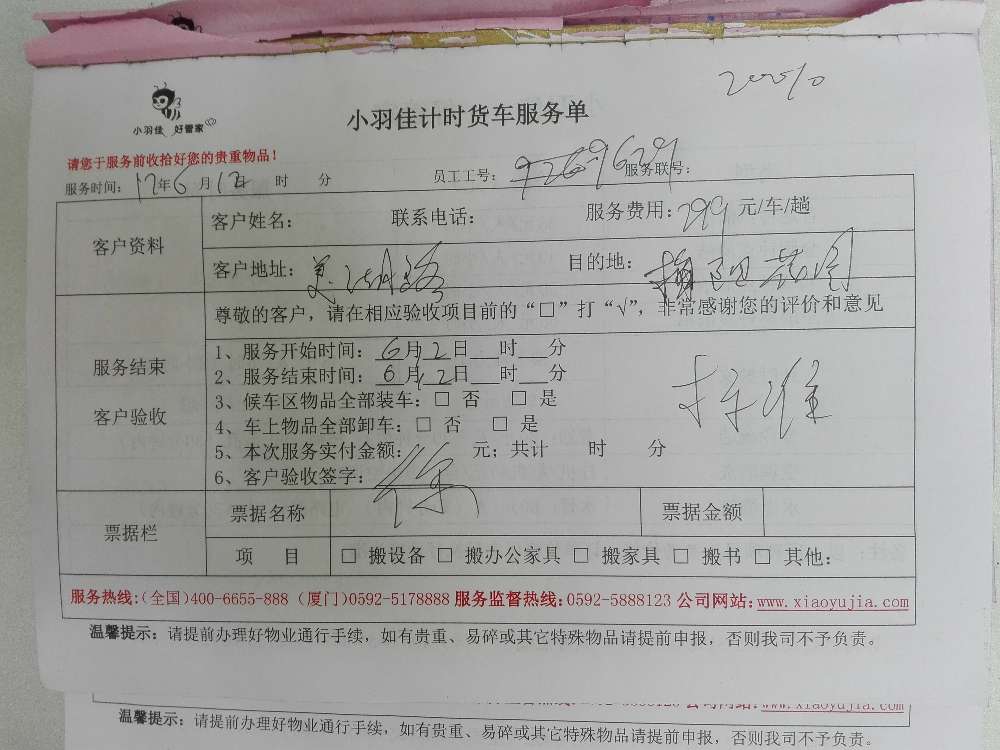 小羽佳 好管家
小羽佳计时货车服务单
请您于服务前收拾好您的贵重物品！
服务时间：12年6月12 时 分 员工工号： 服务联号：
客户资料
客户姓名： 联系电话： 服务费用：299 元/车/趟
客户地址：美湖路 目的地：
服务结束
客户验收
尊敬的客户，请在相应验收项目前的“□”打“√”，非常感谢您的评价和意见
1、服务开始时间：6月12日 时 分
2、服务结束时间：6月12日 时 分
3、候车区物品全部装车：□ 否 □ 是
4、车上物品全部卸车：□ 否 □ 是
5、本次服务实付金额： 元；共计 时 分
6、客户验收签字：
票据栏
票据名称 票据金额
项 目 □ 搬设备 □ 搬办公家具 □ 搬家具 □ 搬书 □ 其他：
服务热线：(全国)400-6655-888 (厦门)0592-5178888 服务监督热线：0592-5888123 公司网站：www.xiaoyujia.com
温馨提示：请提前办理好物业通行手续，如有贵重、易碎或其它特殊物品请提前申报，否则我司不予负责。
温馨提示：请提前办理好物业通行手续，如有贵重、易碎或其它特殊物品请提前申报，否则我司不予负责。